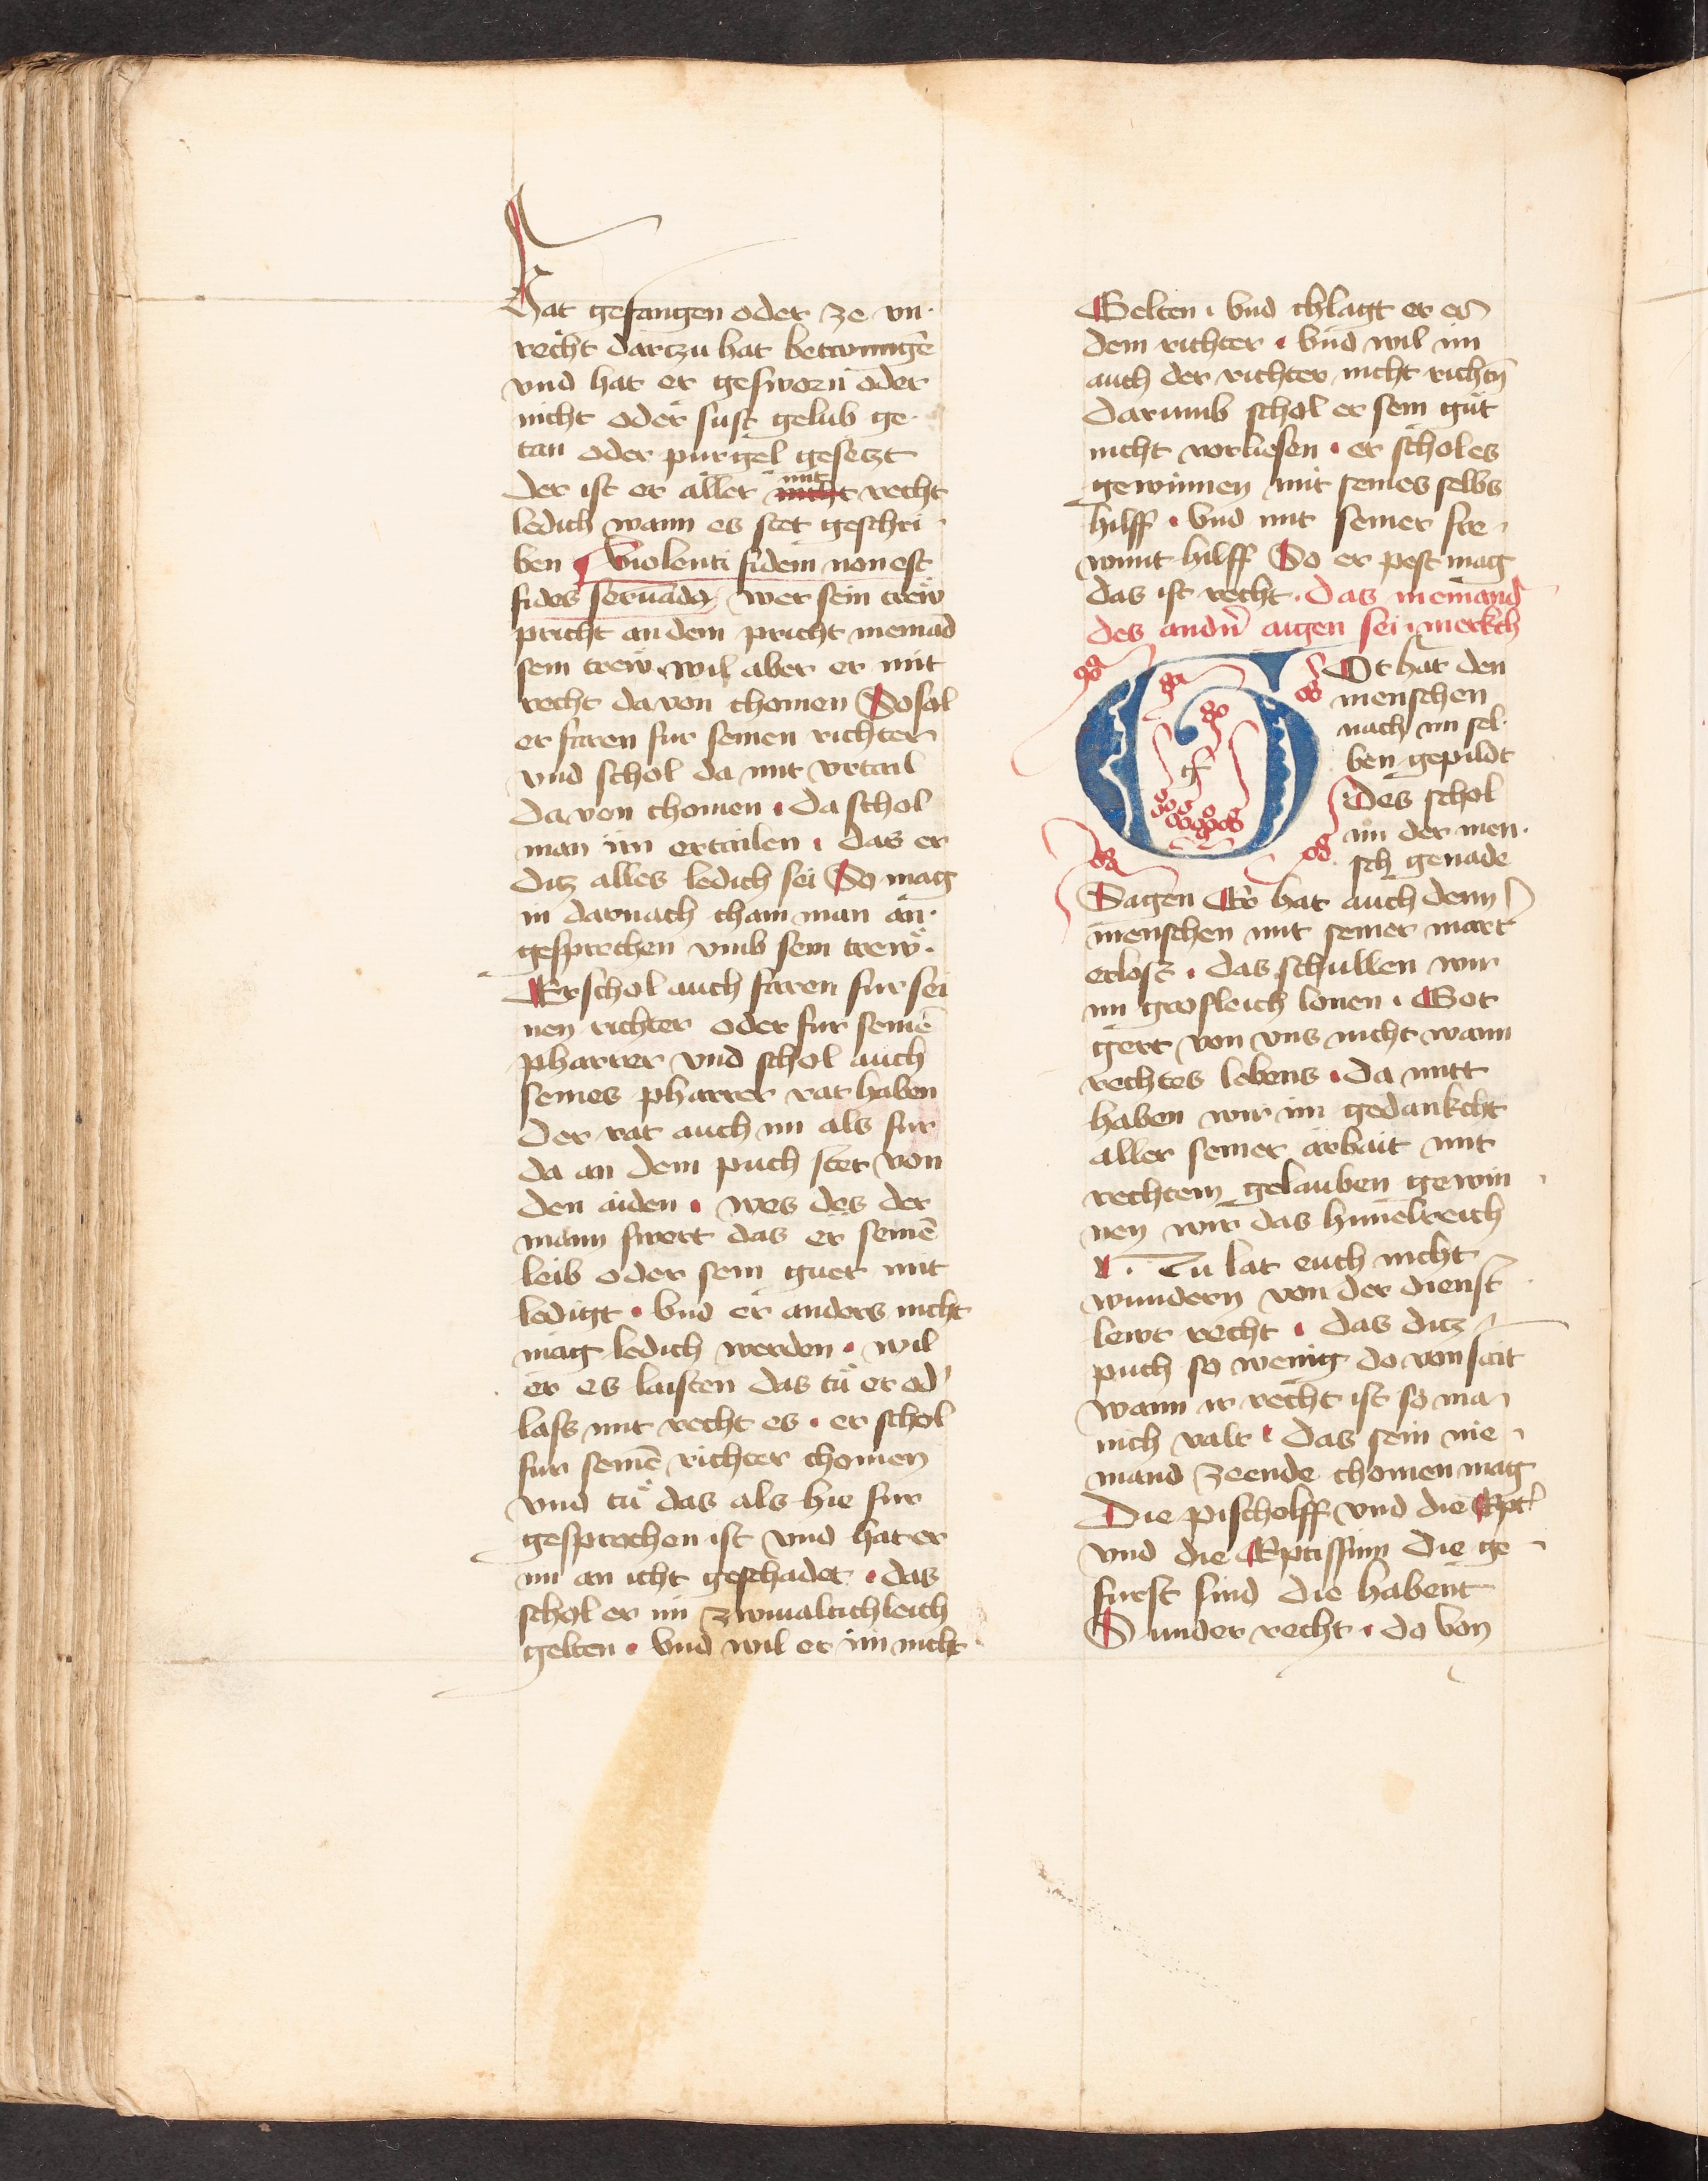 hat gefangen oder ze vn·
recht darczu hat betwungē
vnd hat er gesworn oder
nicht oder sust gelub ge·
tan oder purgel gesetzt
Der ist er aller mit recht
ledich wann es stet geschri·
ben ¶ Violenti fidem non est
fides seruāda wer sein trew̎
pricht an dem pricht niemād
sein trew wil aber er mit
recht davon chomen So sol
er faren fur seinen richter
vnd schol da mit vrtail
davon chomen · Da schol
man im ertailen · das er
ditz alles ledich sei So mag
in darnach cham man an·
gesprechen vmb sein trew̎·
Er schol auch faren fur sei
nen richter oder fur seinē
pharrer vnd schol auch
seines pharrer rat haben
Der rat auch im als fur
da an dem puch stet von
den aiden · wes des der
mann swert das er seinē
leib oder sein guet mit
ledigt · Vnd er anders nicht
mag ledich werden · wil
er es laisten das tu̎ er od'
lass mit recht es · er schol
fur seinē richter chomen
vnd tu̎ das als hie fur
gesprochen ist vnd hat er
im an icht geschadet · das
schol er im zwiualtichleich
gelten · Vnd wil er im nicht
Gelten · Vnd chlagt er es
dem richter · Vnd wil im
auch der richter nicht richtn̄
darumb schol er sein gut
nicht vorliesen · er schol es
gewinnen mit seines selbs
hilff · Vnd mit seiner fre·
wnnt hilff So er pest mag
das ist recht · Das niemand
des andn̄ aigen sei merkch
GOt hat den
menschen
nach im sel·
ben gepildt
des schol
im der men·
sch genade
Sagen Er hat auch denn
menschen mit seiner mart
erlost · das schullen wir
im grosleich lonen · Got
gert von vns nicht wann
rechtes lebens · Da mitt
haben wir im gedankcht
aller seiner arbait mit
rechtem gelauben gewin
nen wir das himelreich
Nu lat euch nicht
wundern von der dienst
lewt recht · das ditz
puch so wenig do von sait
wann ir recht ist so ma
nich valt · das sein nie
mand ze ende chomen mag
Die pischolff vnd die Ept
vnd die Eptissinn die ge
furst sind die habent
Sunder recht · do von